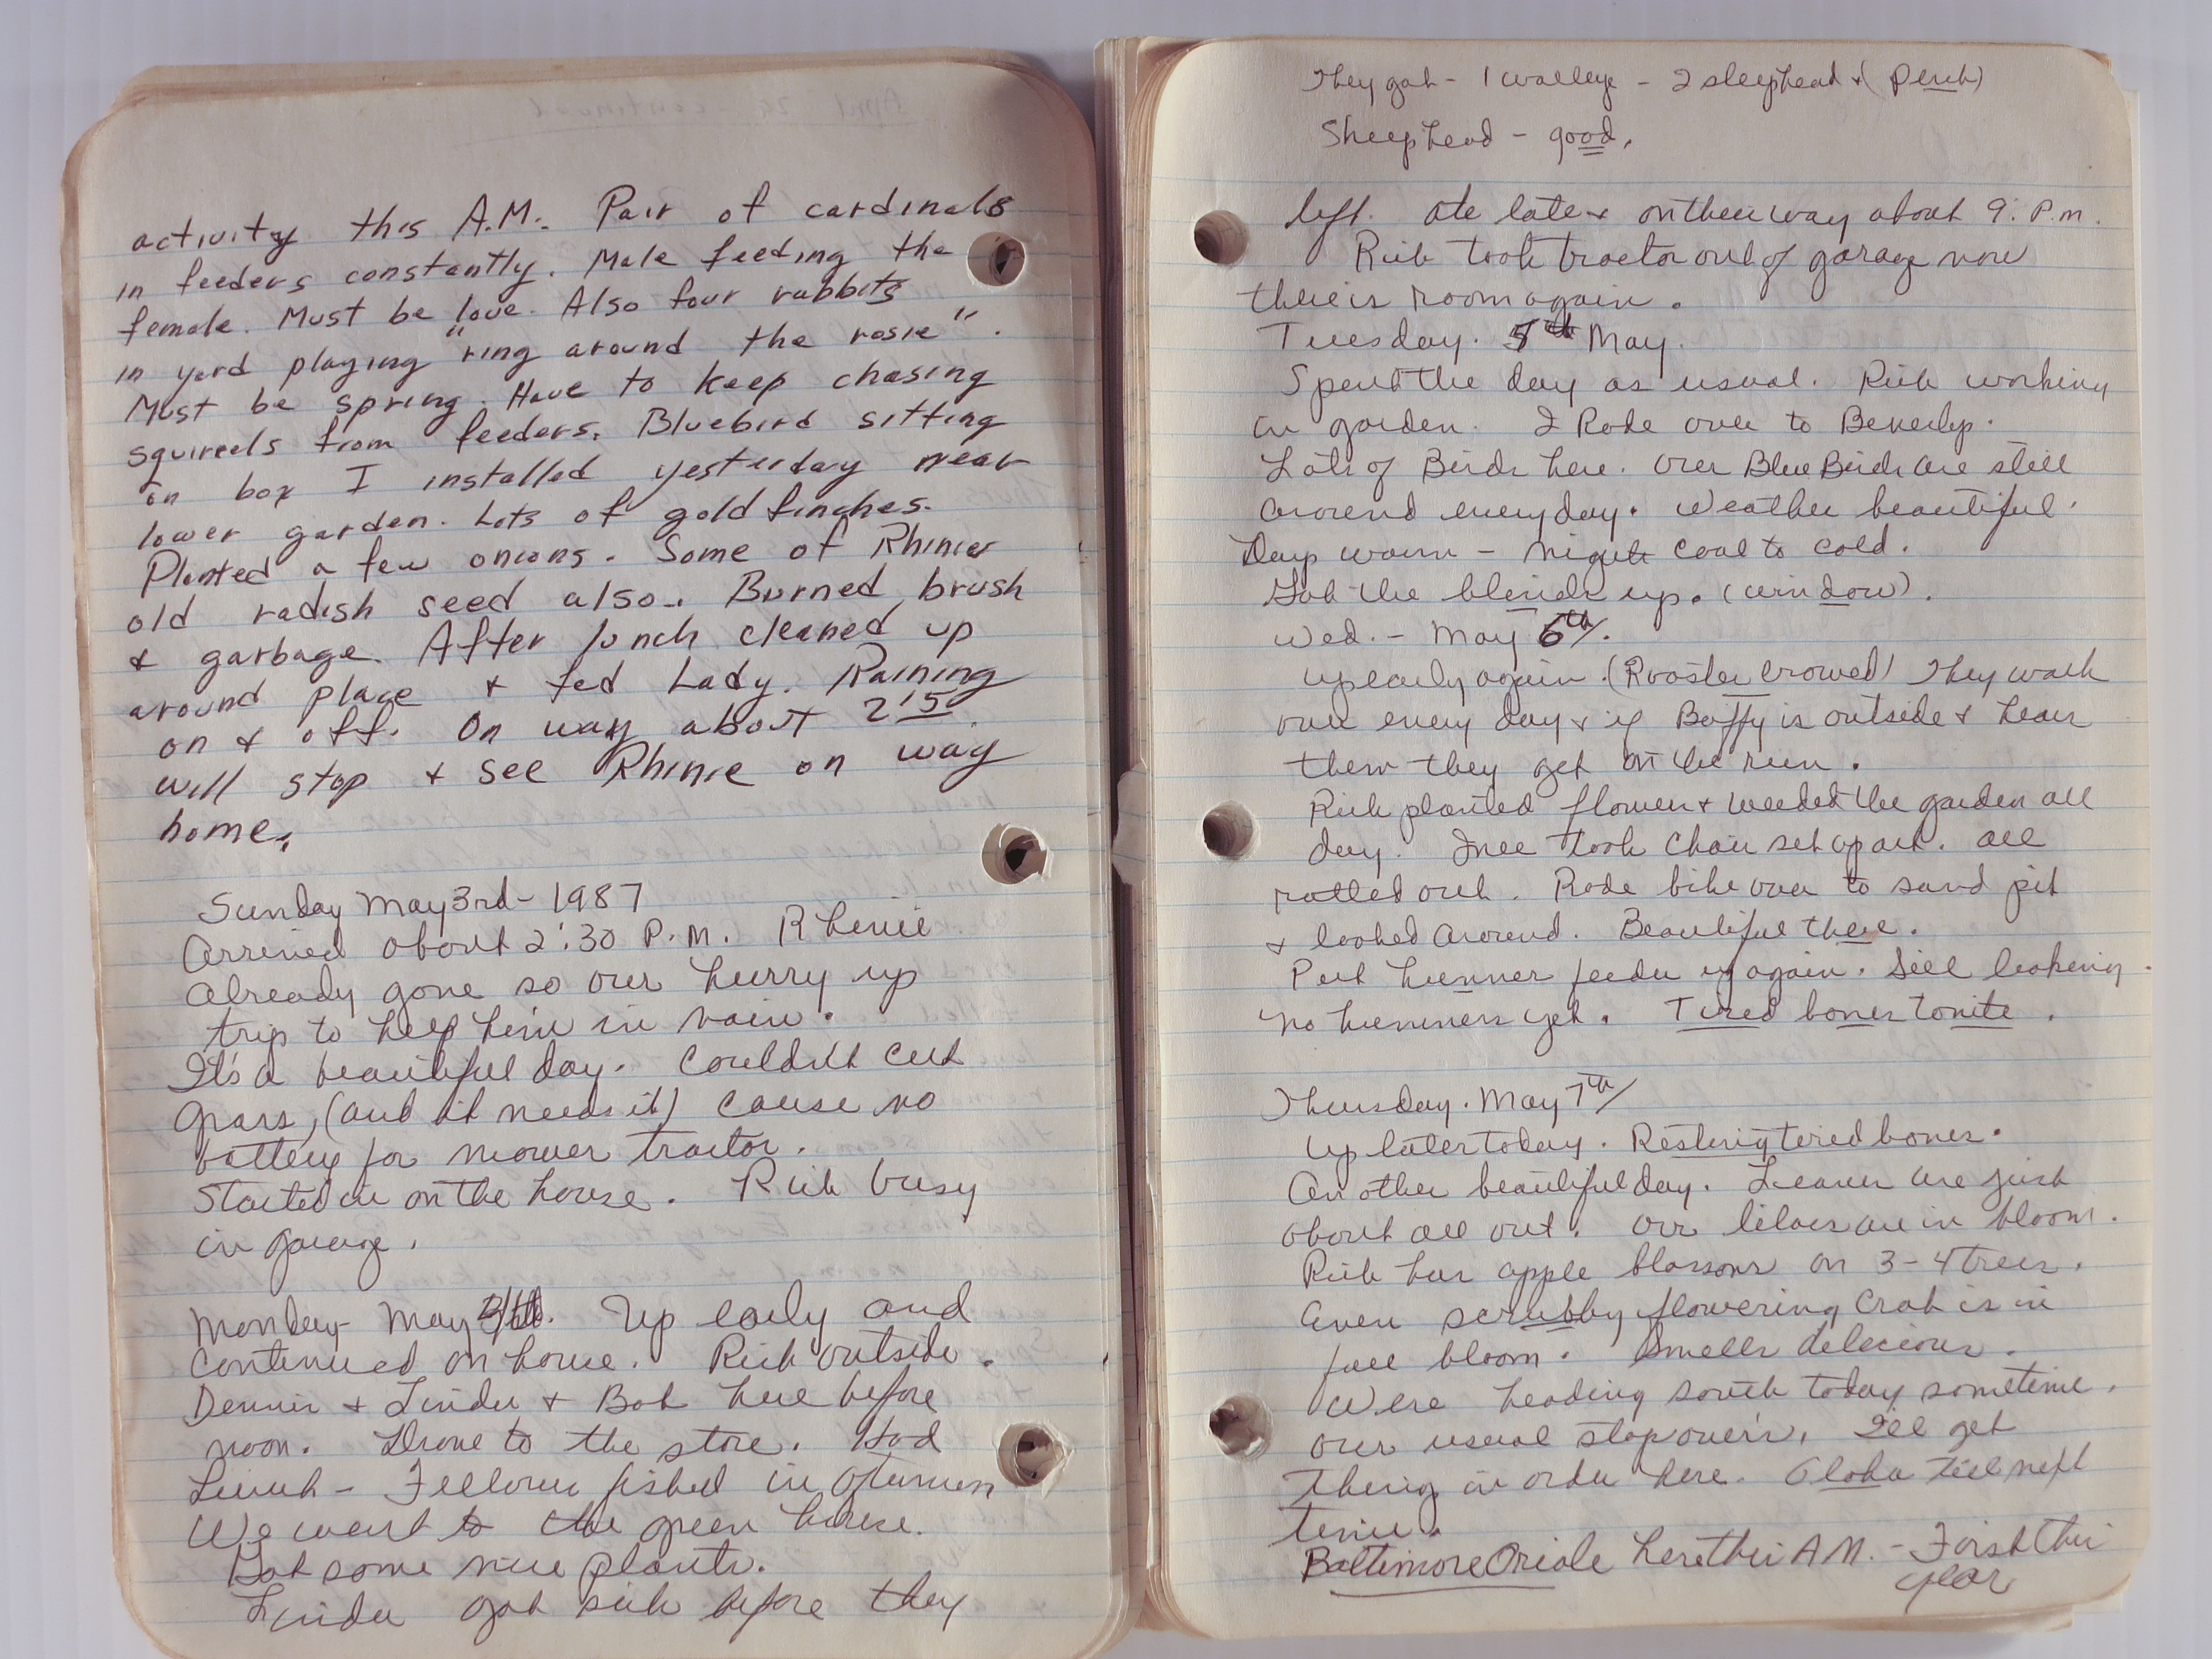 activity this A.M. Pair of cardinals
in feeders constantly. Male feeding the
female. Must be love. Also four rabbits
in yard playing "ring around the rosie".
Must be spring. Have to keep chasing
squirrels from feeders. Bluebird sitting
on box I installed yesterday near
lower garden. Lots of gold finches.
Planted a few onions. Some of Rhinies
old radish seed also. Burned brush
& garbage. After lunch cleaned up
around place & fed Lady. Raining
on & off. On way about 2:15.
will stop & see Rhinie on way
home.
Sunday May 3rd - 1987
Arrived about 2:30 P.M. Rhinie
already gone so our hurry up
trip to help him in vain.
It's a beautiful day. Couldn't cut
grass, (and it needs it) cause no
battery for mower tractor.
Started in on the house. Rich busy
in garage.
Monday May 4th. Up early and
continued on house. Rich outside.
Dennis & Linda & Bob here before
noon. Drove to the store. Had
Lunch - Fellows fished in afternoon
We went to the green house.
Got some nice plants.
Linda got sick before they
They got - 1 walleye - 2 sheephead & (perch)
Sheephead - good.
left. Ate late & on their way about 9: P.m.
Rich took tractor out of garage now
there is room again.
Tuesday. 5th May.
Spent the day as usual. Rich working
in garden. I Rode over to Beverlys.
Lots of Birds here. Our Blue Birds are still
around everyday. Weather beautiful.
Days warm - nights cool to cold.
Got the blinds up. (window).
Wed. - May 6th.
up early again. (Rooster crowed) They walk
over every day & if Buffy is outside & hears
them they get on the run.
Rich planted flowers & weeded the garden all
day. Tree took chair set apart. all
rotted out. Rode bike over to sand pit
& looked around. Beautiful there.
Put hummer feeder up again. Still looking
no hummers yet. Tired bones tonite.
Thursday. May 7th
up later today. Resting tired bones.
Another beautiful day. Leaves are just
about all out. Our lilacs are in bloom.
Rich has apple blossoms on 3-4 trees.
Even scrubby flowering Crab is in
full bloom. Smells delicious.
Were heading south today sometime.
our usual stop overs. I'll get
things in order here. Aloha till next
time.
Baltimore Oriole here this A.M. - First this
year